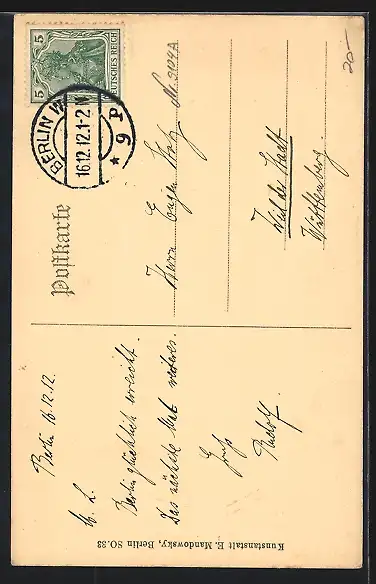 Postkarte
5 5
DEUTSCHES REICH
BERLIN W
16.12.12.1-2N
* 9 P
20-
Herrn Eugen Stotz
Weil der Stadt
Württemberg.
Berlin 16.12.12.
M. L.
Berlin glücklich erreicht.
Das nächste Mal weiteres.
Gruß
Rudolf.
Kunstanstalt E. Mandowsky, Berlin SO.33